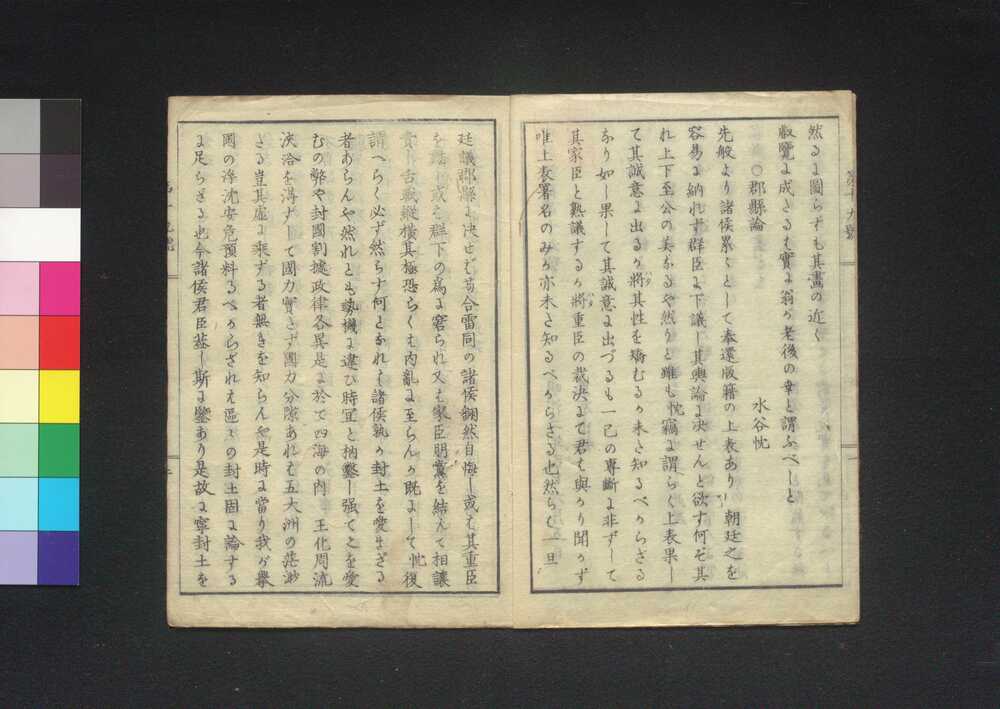 然るに圖らずも其盡の近く
叡覽に成たるも實に翁が老後の幸と謂ふべしと
○郡縣論
水谷忱
先般より諸侯累々として奉還版籍の上表あり 朝廷之を
容易に納れず群臣に下議し其輿論に决せんと欲す何ぞ其
れ上下至公の美なるや然りと雖も忱竊に謂らく上表果し
て其誠意に出るか將其性を矯むるか未だ知るべからざる
なり如し果して其誠意に出づるも一己の專斷に非ずして
其家臣と熟議するか將重臣の裁决にて君も與かり聞かず
唯上表署名のみか亦未だ知るべからざる也然らく一旦
廷議郡縣に决せば苟合雷同の諸侯飜然自悔し或は其重臣
を 或は群下の爲に窘られ又は家臣朋黨を結んで相讓
責し舌戰縱横其極恐らくは内亂に至らんか既にして忱復
謂へらく必ず然らず何となれば諸侯孰か封土を愛せざる
者あらんや然れとも勢機に違ひ時宜と枘鑿し強て之を愛
むの弊や封國割據政律各異是に於て四海の内 王化周流
浹洽を得ずして國力實さず國力分隙あれば五大洲の茫渺
たる豈其虚に乘ずる者無きを知らんや是時に當り我が擧
國の浮沈安危預料るべからざれば區々の封土固に論する
に足らざる也今諸侯君臣玆し斯に鑒あり是故に寧封土を